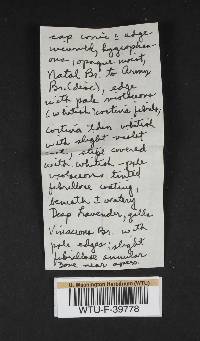 cap conic c̄ edge
incurved, hygrophan-
ous, opaque moist,
Natal Br. to Army
Br. (disc), edge
with pale violaceous
(whitish cortina fibrils,
cortina thin whitish
with slight violet
stipe covered
with whitish-pale
violaceous tinted
fibrillose coating,
beneath ± watery
Deep Lavender, gills
Vinaceous Br. with
pale edges; slight
fibrillose annular
zone near apex.
U. Washington Herbarium (WTU)
WTU-F-39778